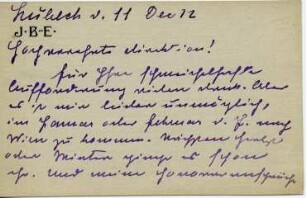 d. 11 Dec 12
J·B·E·
Hochverehrte Direktion!
für Ihre schmeichelhafte
Aufforderung vielen Dank. Aber
es is mir leider unmöglich,
im Januar oder Februar d. J. nach
Wien zu kommen. Nächsten Herbst
oder Winter ginge es schon
eher. Und meine Honoraransprüche